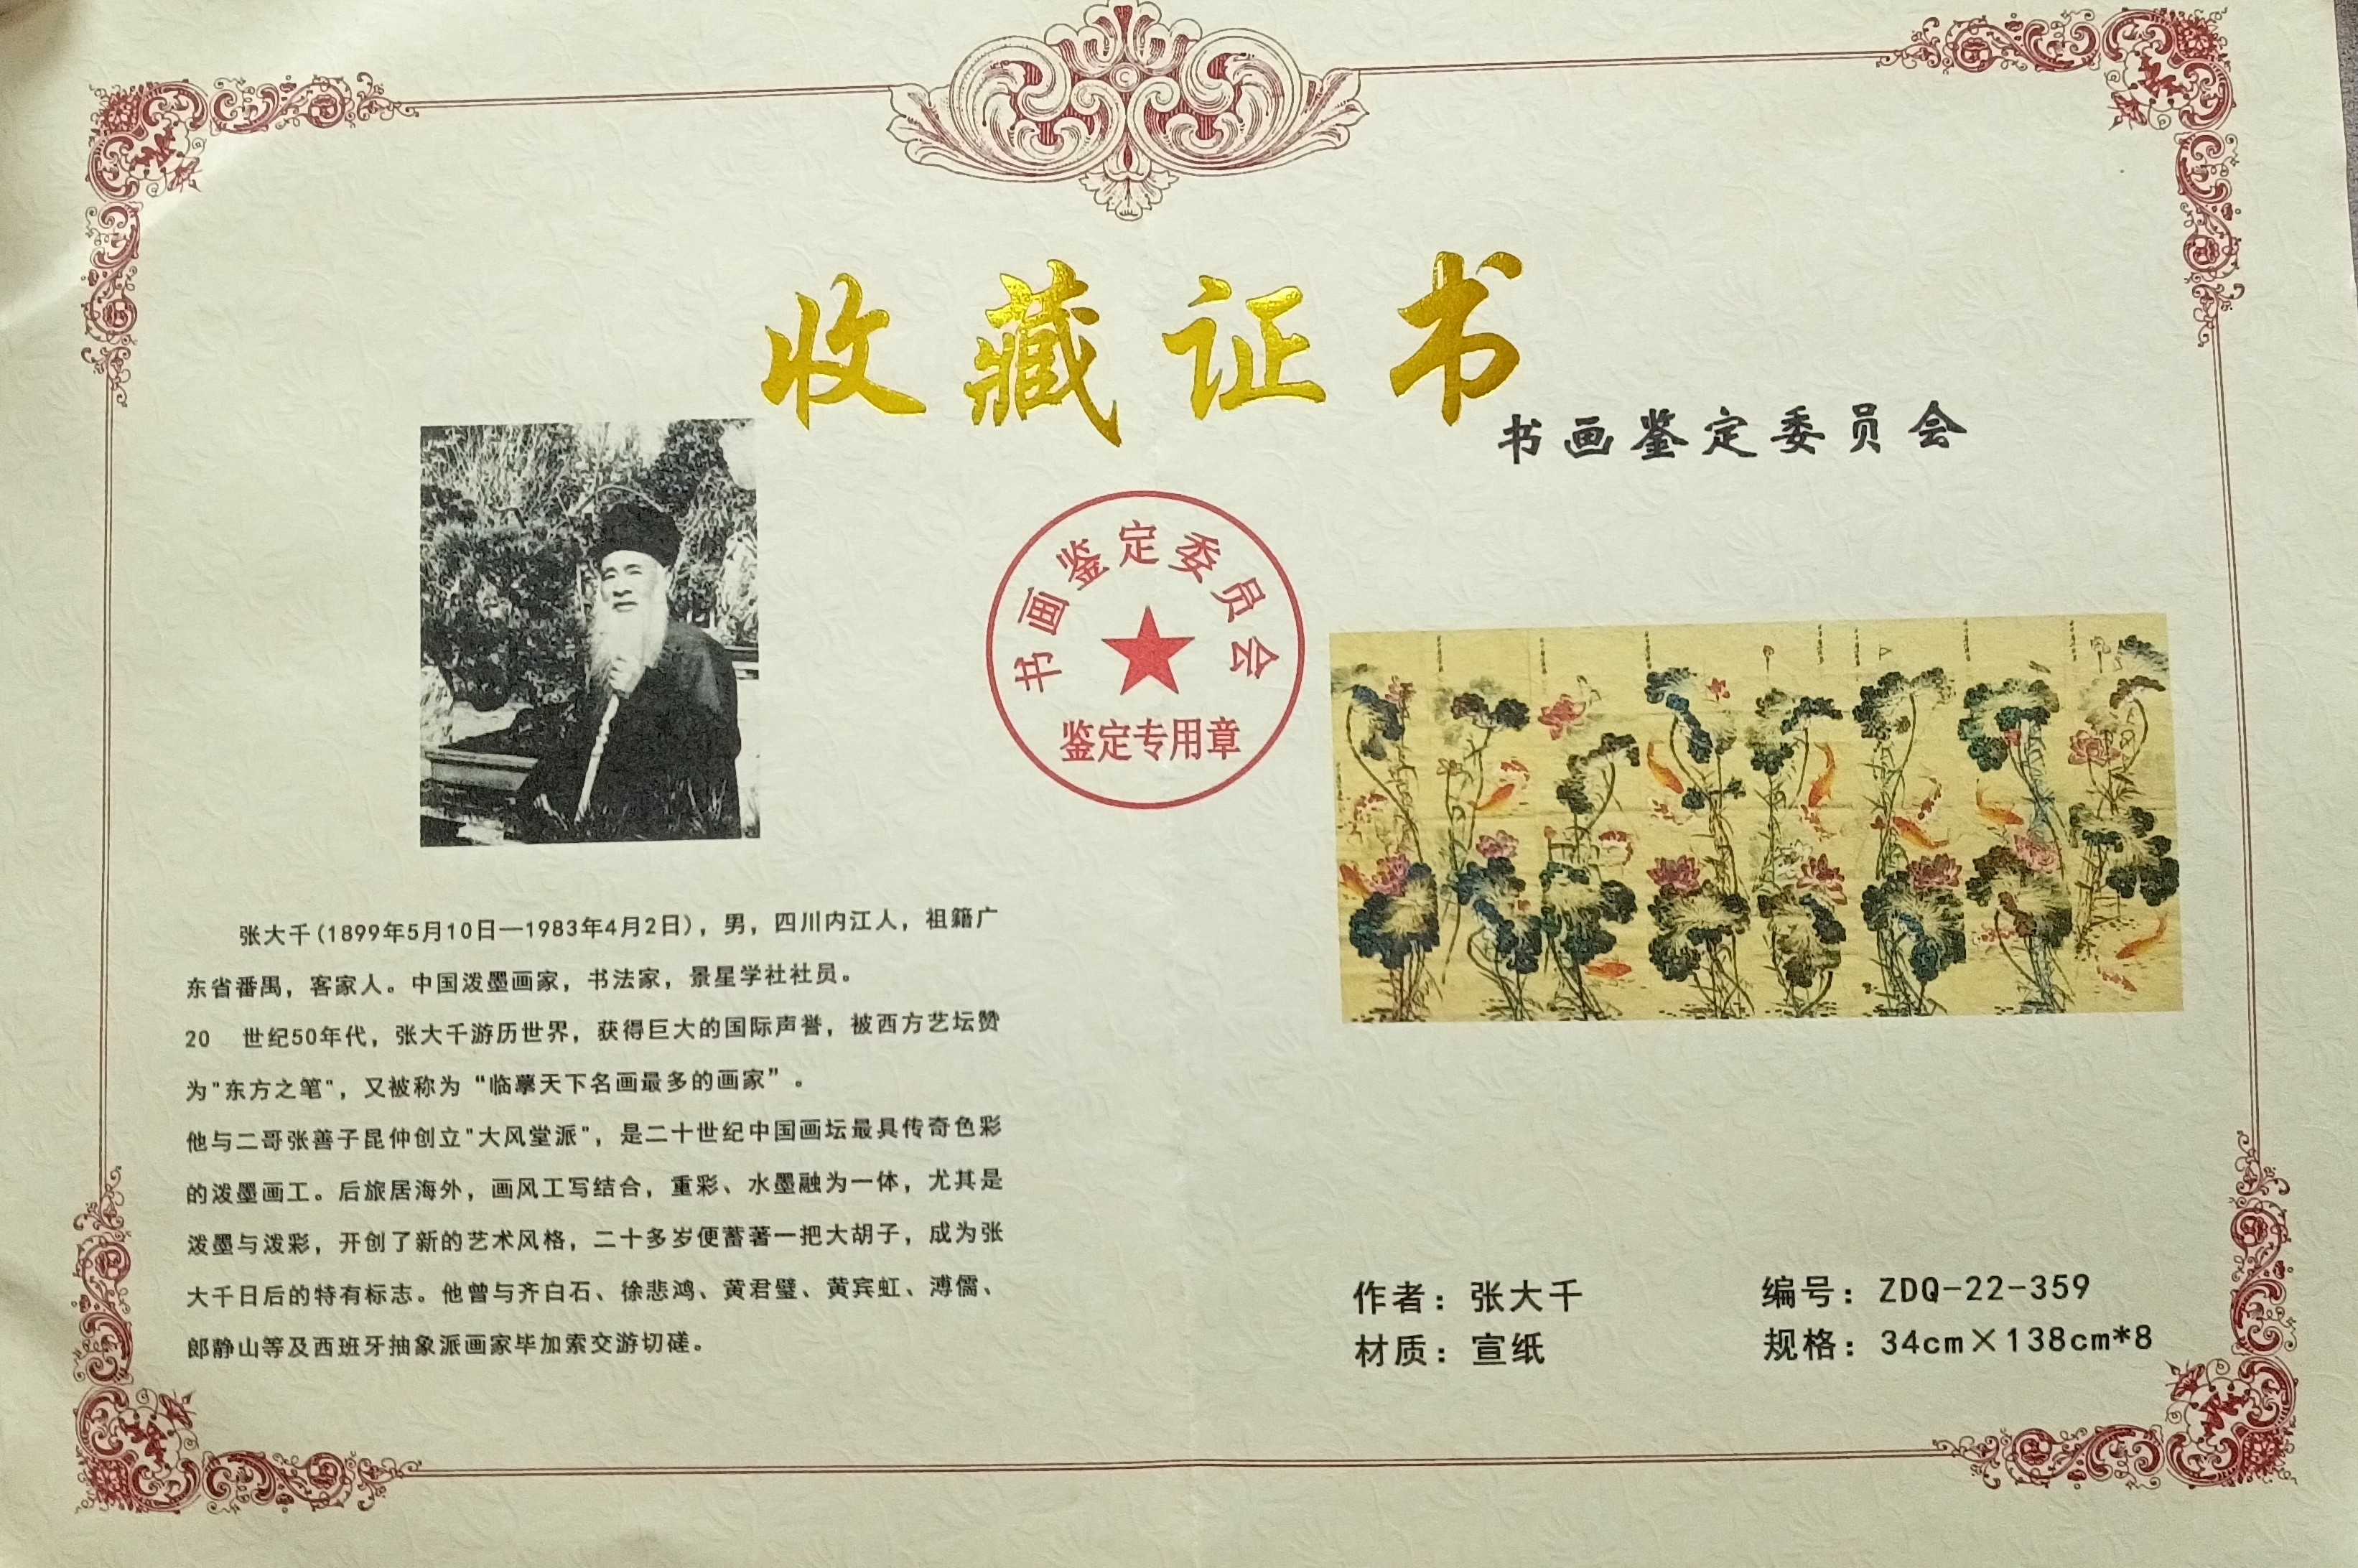 收藏证书
书画鉴定委员会
书画鉴定委员会
鉴定专用章
张大千(1899年5月10日—1983年4月2日)，男，四川内江人，祖籍广
东省番禺，客家人。中国泼墨画家，书法家，景星学社社员。
20 世纪50年代，张大千游历世界，获得巨大的国际声誉，被西方艺坛赞
为"东方之笔"，又被称为“临摹天下名画最多的画家”。
他与二哥张善子昆仲创立"大风堂派"，是二十世纪中国画坛最具传奇色彩
的泼墨画工。后旅居海外，画风工写结合，重彩、水墨融为一体，尤其是
泼墨与泼彩，开创了新的艺术风格，二十多岁便蓄著一把大胡子，成为张
大千日后的特有标志。他曾与齐白石、徐悲鸿、黄君璧、黄宾虹、溥儒、
郎静山等及西班牙抽象派画家毕加索交游切磋。
作者：张大千
编号：ZDQ-22-359
材质：宣纸
规格：34cm×138cm*8